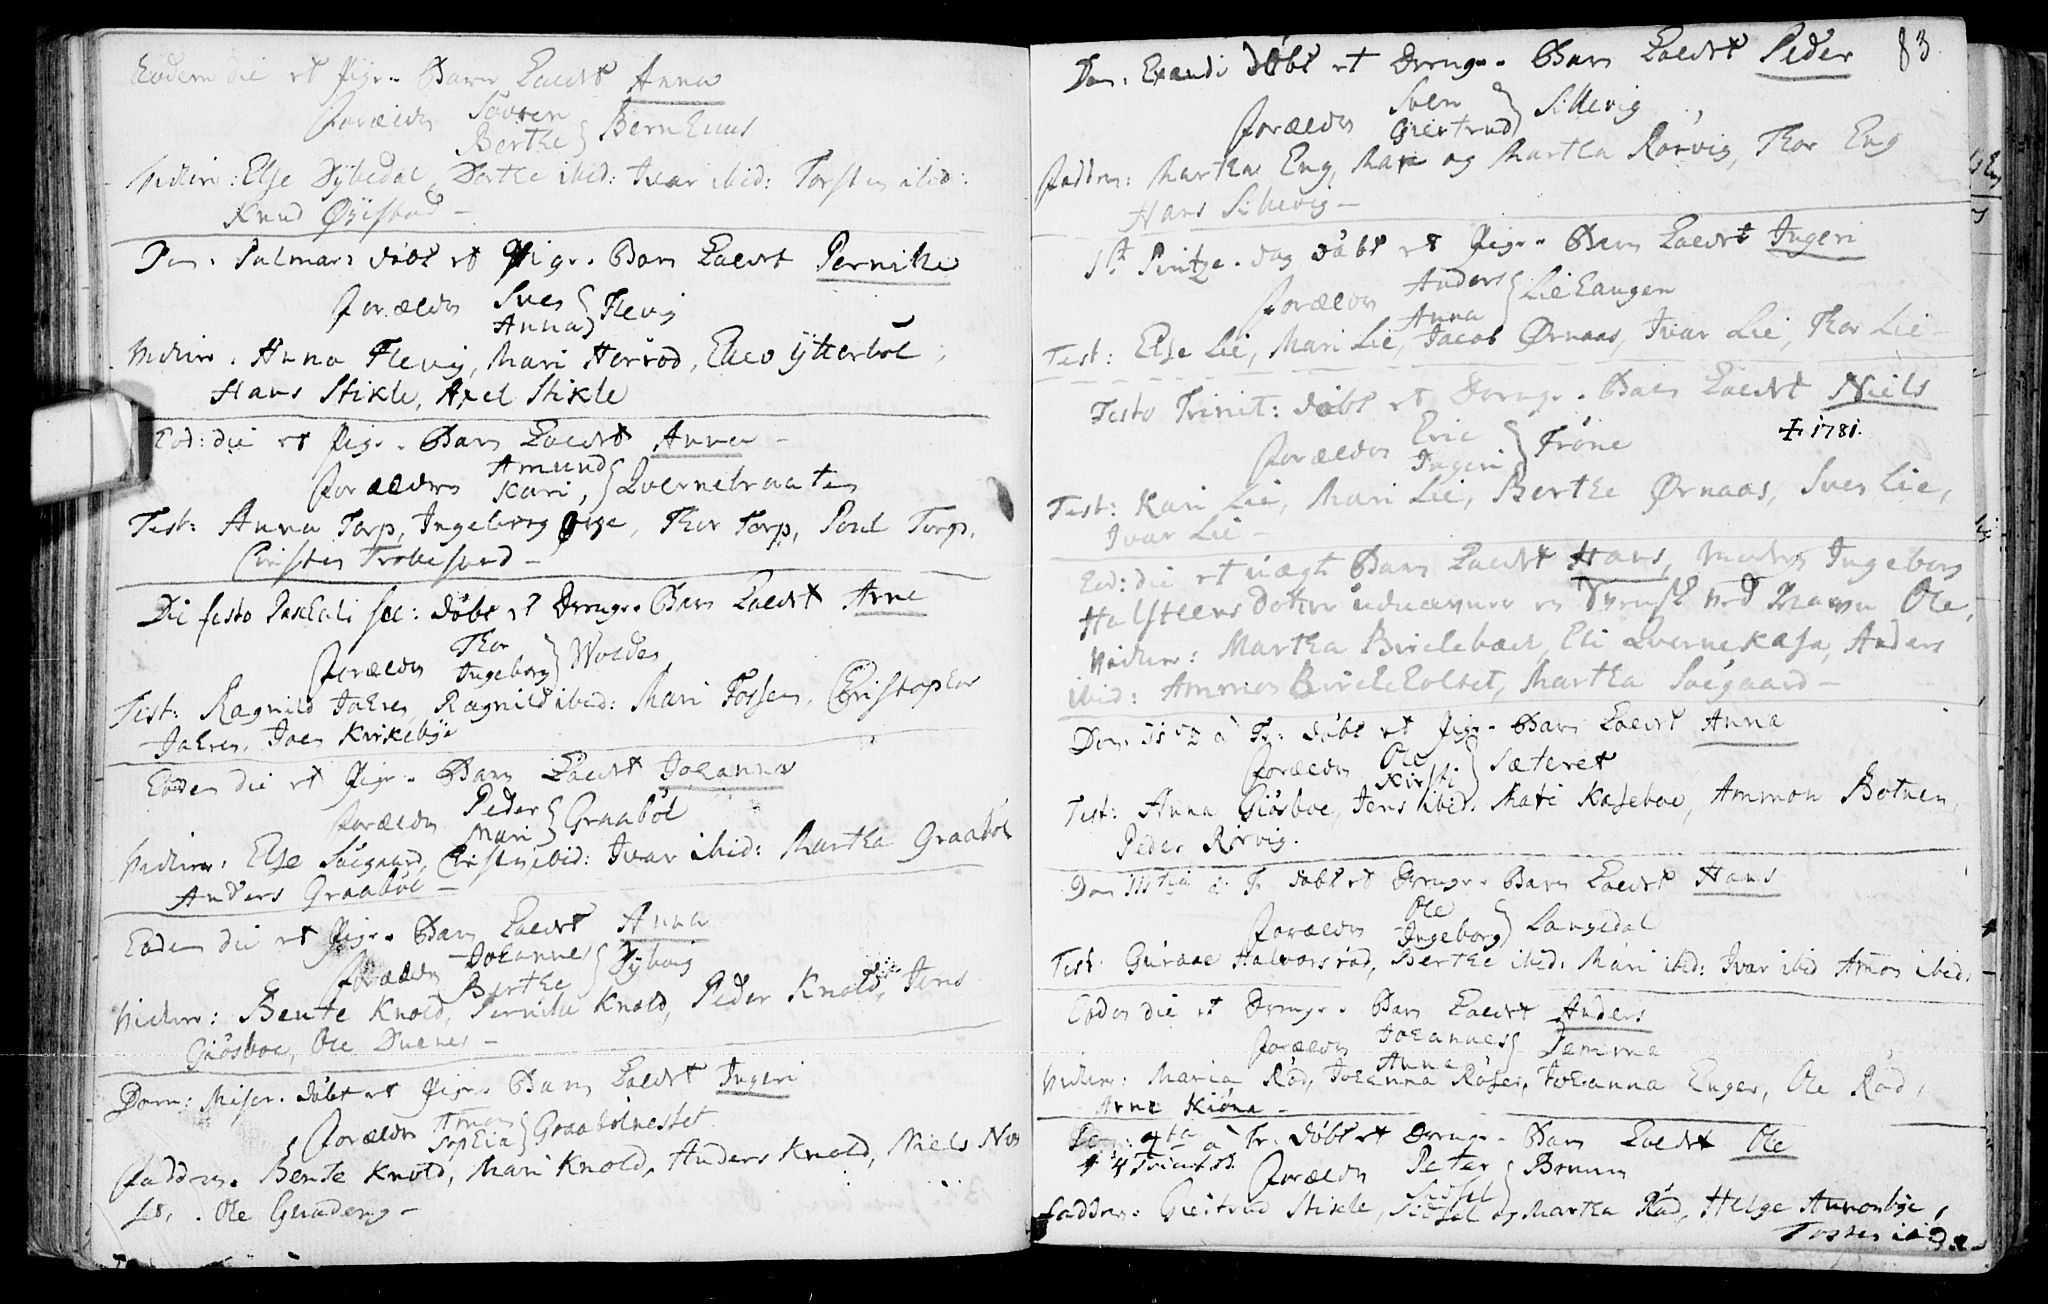 Eodem die et Pige-Barn kaldt Anna
Forældre Søvren
Berthe } Bernhuus
Vidner: Else Dybedal, Dorthe ibid: Ivar ibid: Torsten ibid:
Knud Øyistad –
Dom: Palmar: døbt et Pige-Barn kaldt Pernille
Forældre Sven
Anna } Flevig
Vidner. Anna Flevig, Mari Herrød, Ytterbøl,
Hans Stikle, Axel Stikle
Eod: die et Pige-Barn kaldt Anna –
Forældre Amund
Kari, } Qvernebraaten
Test: Anna Torp, Ingeborg, Thor Torp, Poul Torp,
Christen –
Die festo Paschali døbt et Drenge-Barn kaldt Arne
Forældre Thor
Ingeborg } Wolden
Test: Ragnild Jahren, Ragnild ibid: Mari Fossen, Christopher
Jahren, Joen Kirkebye
Eodem die et Pige-Barn kaldt Johanna
Forældre Peder
Mari } Graabøl
Vidner: Else Søegaard, Christen ibid: Ivar ibid: Martha Graabøl
Anders Graabøl –
Eodem die et Pige-Barn kaldt Anna
Forældre Johannes
Berthe } Dybvig
Vidner: Bente Knold, Pernille Knold, Peder Knold, Jens
Giøsboe, Ole Duenes –
Dom: Miser. døbt et Pige-Barn kaldt Ingeri
Forældre Amon
Sophia } Graabølnestet
Faddere. Bente Knold, Mari Knold, Anders Knold, Niels
Ole –
83
Dom: Exaudi døbt et Drenge-Barn kaldt Peder
Forældre Sven
Giertrud } Sillevig
Faddere: Martha Eng, Mari og Martha Rørvig, Thor Eng
Hans Sillevig –
Pintze-dag døbt et Pige-Barn kaldt Ingeri
Forældre Anders
Anna } Liehaugen
Test: Else Lie, Mari Lie, Jacob Ørnaas, Ivar Lie, Thor Lie –
Festo Trinit: døbt et Drenge-Barn kaldt Niels
Forældre Eric
Ingeri } Trøne
† 1781.
Test: Kari Lie, Mari Lie, Berthe Ørnaas, Sven Lie,
Ivar Lie –
Eod: die et uægte Barn kaldt Hans, Moder Ingeborg
Halsteens Dotter en Svensk ved Navn Ole,
Vidner: Martha Birchebæch, Eli Qvernekasa, Anders
ibid: Ammon Bircheholtet, Martha Søegaard –
Dom: à Tr: døbt et Pige-Barn kaldt Anna
Forældre Ole
Kirsti } Sæteret
Test: Anna Giøsboe, Jens ibid. Mari Kaseboe, Ammon Botnen,
Peder Rørvig.
Dom III tia à Tr. døbt et Drenge-Barn kaldt Hans
Forældre Ole
Ingeborg } Langedal
Test: Guroe Halvorsrød, Berthe ibid: Mari ibid: Ivar ibid Amon ibid:
Eodem die et Drenge-Barn kaldt Anders
Forældre Johannes
Anna } Damerne
Vidner: Maria Rød, Johanna Røser, Johanna Enger, Ole Rød,
Arne Kiøna –
Dom: 4ta à Tr: døbt et Drenge-Barn kaldt Ole
Forældre Peter
Sidsel } Bruun
Faddere. Giertrud Stikle, Sidsel og Martha Rød, Helge Aunonbye,
Tosten ibid.